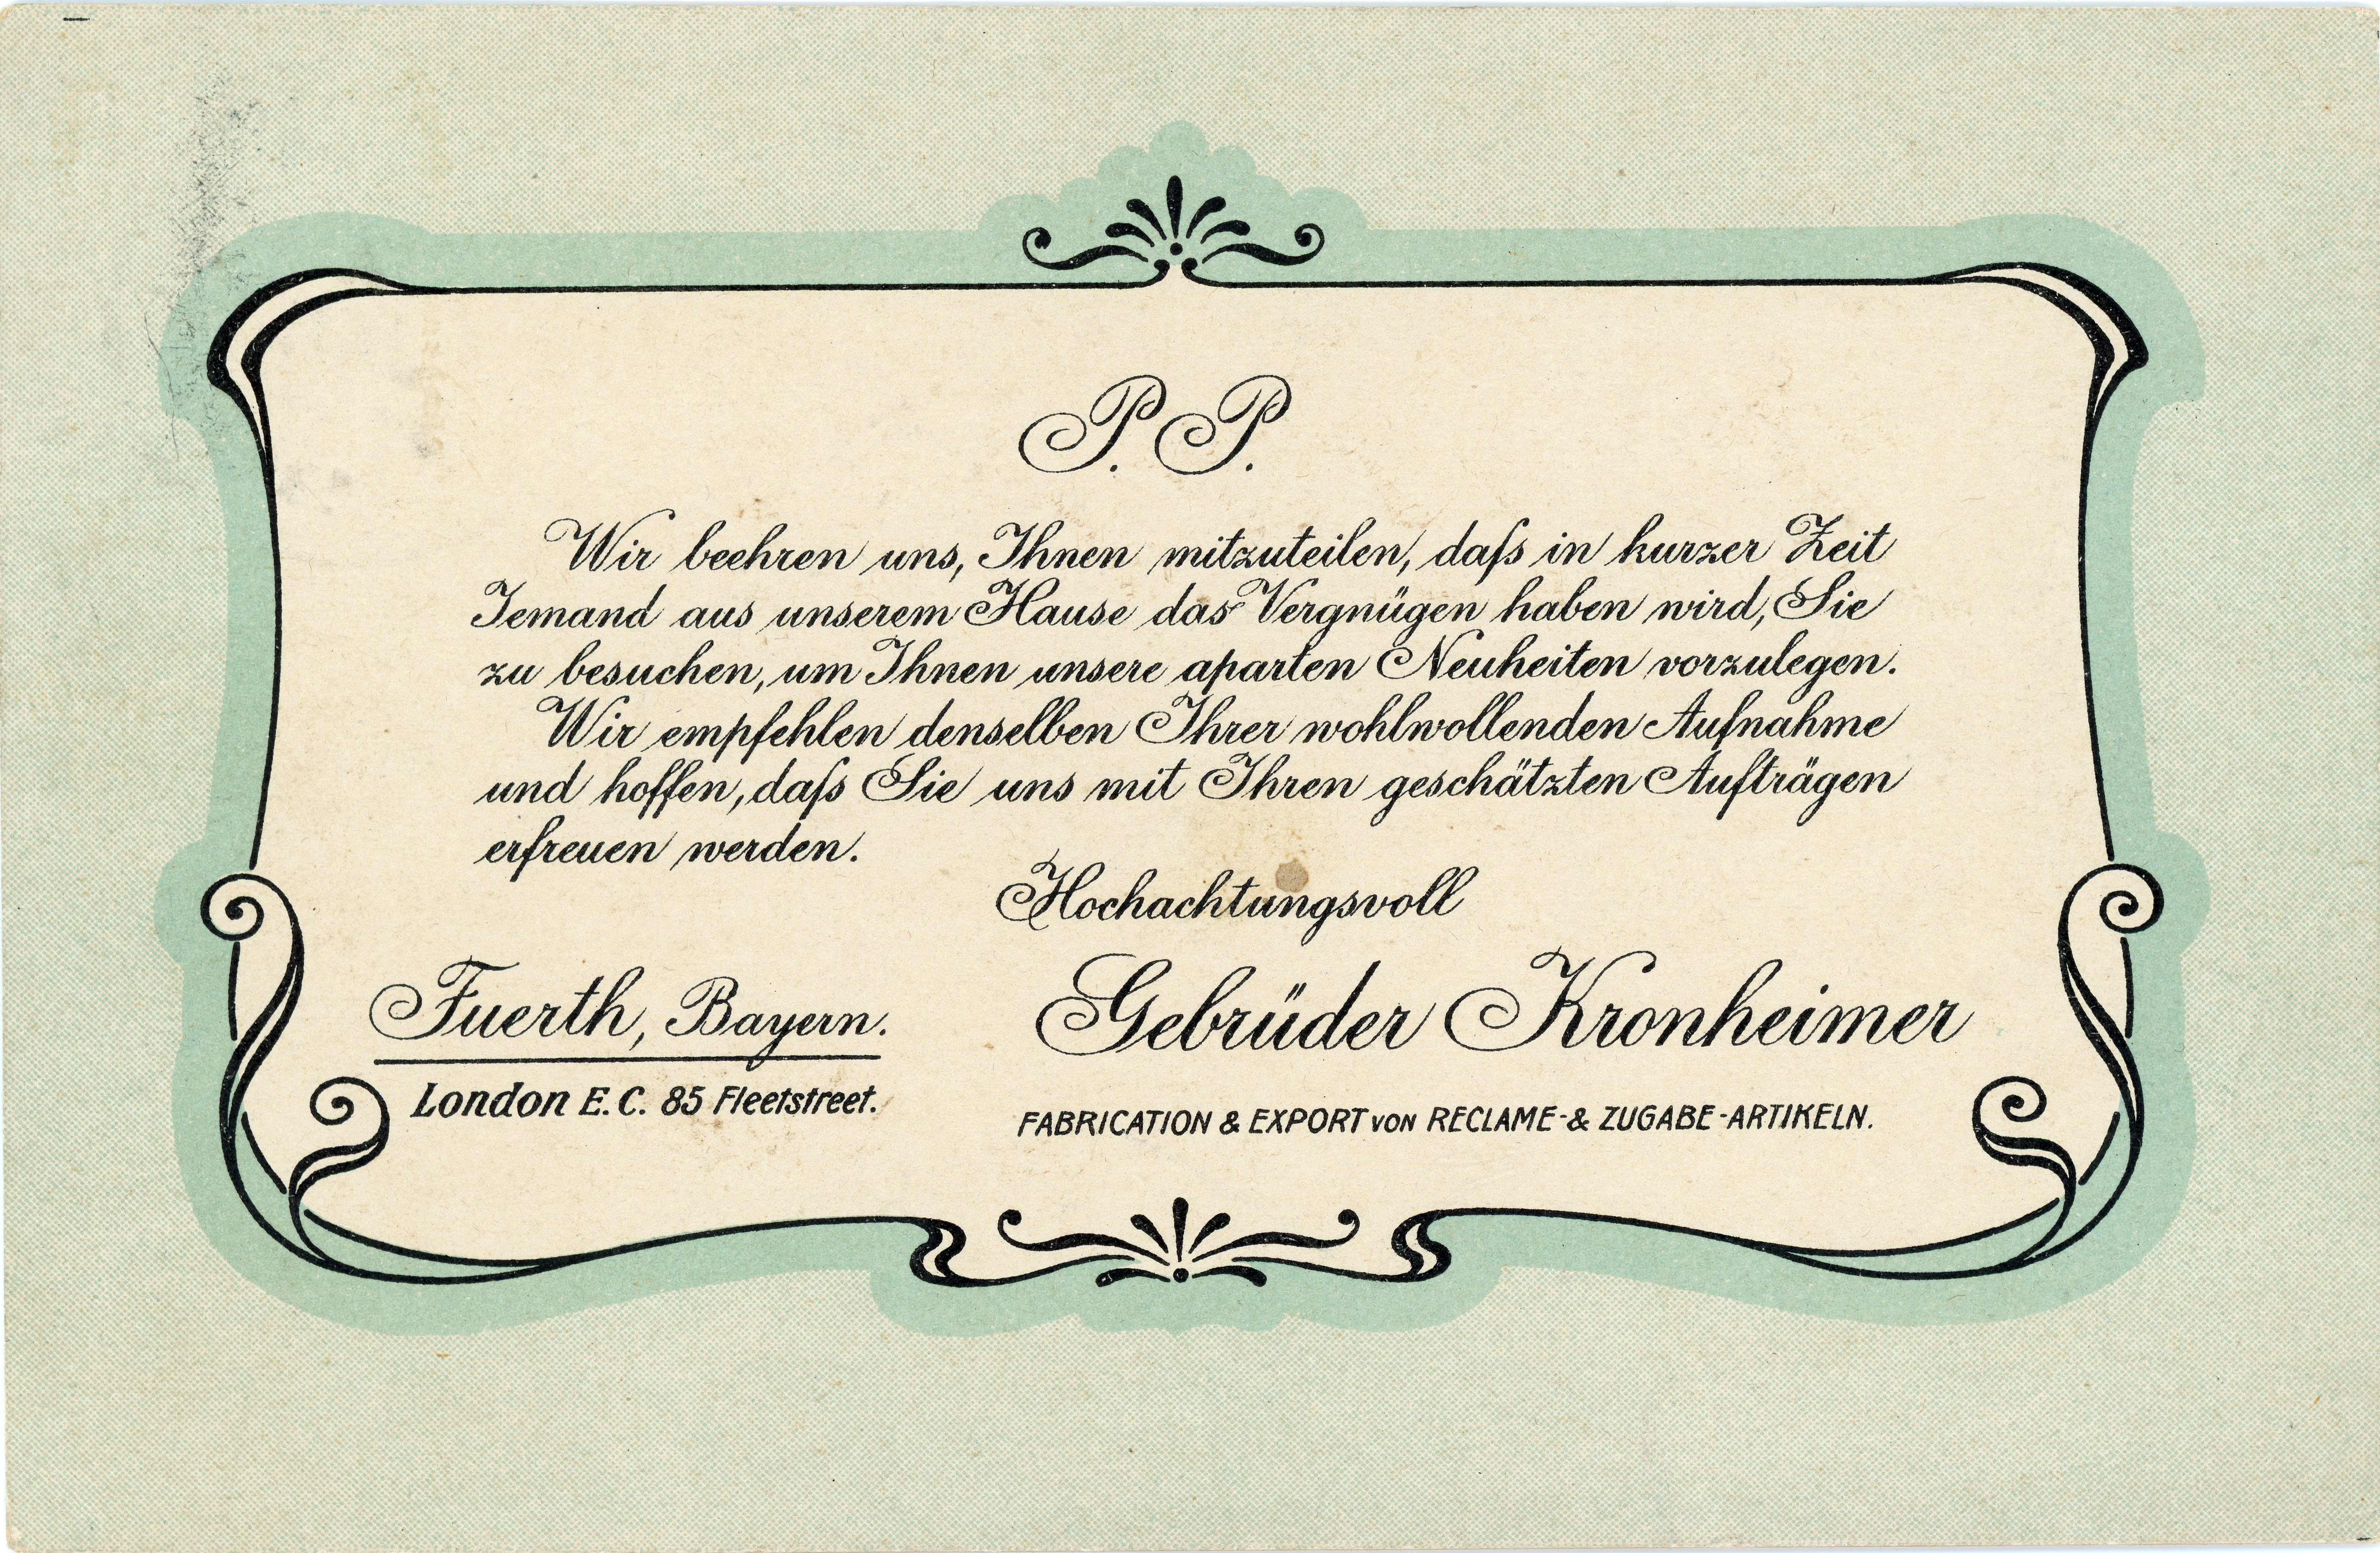 P. P.
Wir beehren uns, Ihnen mitzuteilen, daſs in kurzer Zeit
Jemand aus unserem Hause das Vergnügen haben wird, Sie
zu besuchen, um Ihnen unsere aparten Neuheiten vorzulegen.
Wir empfehlen denselben Ihrer wohlwollenden Aufnahme
und hoffen, daſs Sie uns mit Ihren geschätzten Aufträgen
erfreuen werden.
Hochachtungsvoll
Gebrüder Kronheimer
FABRICATION & EXPORT VON RECLAME- & ZUGABE-ARTIKELN.
Fuerth, Bayern.
London E. C. 85 Fleetstreet.